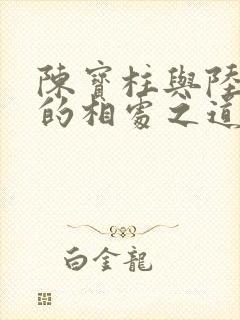 陳寶柱與陸
的相處之道
白金龍